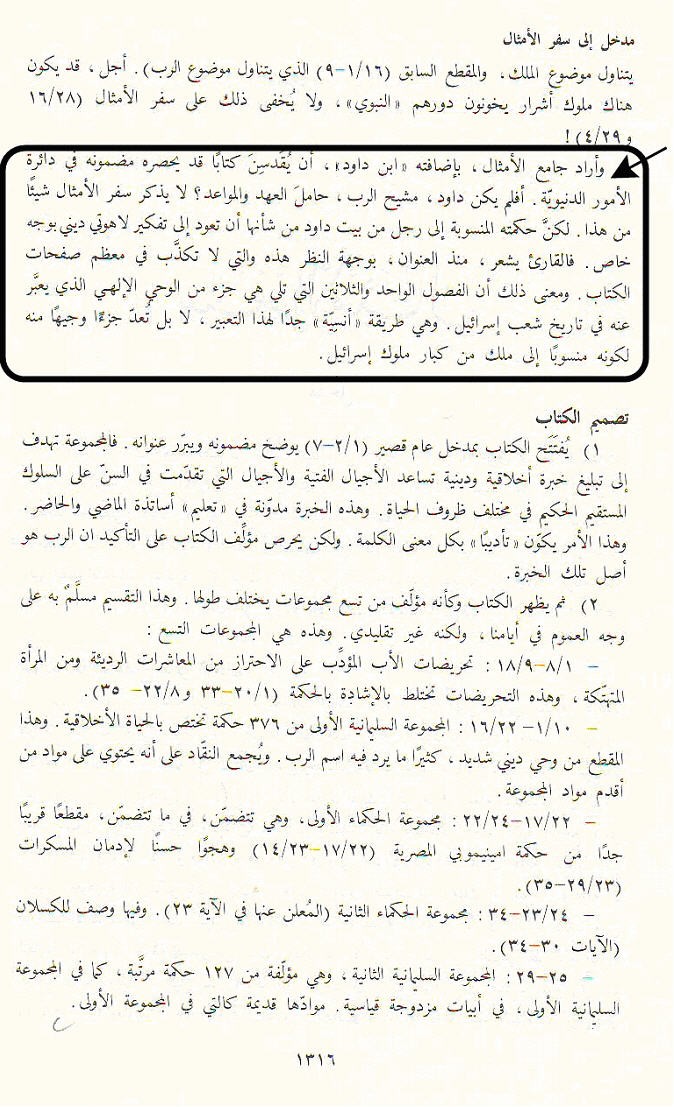 مدخل إلى سفر الأمثال
يتناول موضوع الملك، والمقطع السابق (١/١٦-٩) الذي يتناول موضوع الرب). أجل، قد يكون
هناك ملوك أشرار يخونون دورهم «النبوي»، ولا يُخفى ذلك على سفر الأمثال (١٦/٢٨
و ٤/٢٩)!
وأراد جامع الأمثال، بإضافته «ابن داود»، أن يُقَدسِنَ كتابًا قد يحصره مضمونه في دائرة
الأمور الدنيويّة. أفلم يكن داود، مشيح الرب، حاملَ العهد والمواعد؟ لا يذكر سفر الأمثال شيئًا
من هذا. لكنَّ حكمته المنسوبة إلى رجل من بيت داود من شأنها أن تعود إلى تفكير لاهوتي ديني بوجه
خاص. فالقارئ يشعر، منذ العنوان، بوجهة النظر هذه والتي لا تكذَّب في معظم صفحات
الكتاب. ومعنى ذلك أن الفصول الواحد والثلاثين التي تلي هي جزء من الوحي الإلهي الذي يعبَّر
عنه في تاريخ شعب إسرائيل. وهي طريقة «أنسيّة» جدًا لهذا التعبير، لا بل تُعدّ جزءًا وجيهًا منه
لكونه منسوبًا إلى ملك من كبار ملوك إسرائيل.
تصميم الكتاب
١) يُفتَتَح الكتاب بمدخل عام قصير (٢/١-٧) يوضح مضمونه ويبرّر عنوانه. فالمجموعة تهدف
إلى تبليغ خبرة أخلاقية ودينية تساعد الأجيال الفتية والأجيال التي تقدّمت في السنّ على السلوك
المستقيم الحكيم في مختلف ظروف الحياة. وهذه الخبرة مدوّنة في «تعليم» أساتذة الماضي والحاضر.
وهذا الأمر يكوّن «تأديبًا» بكل معنى الكلمة. ولكن يحرص مؤلّف الكتاب على التأكيد ان الرب هو
أصل تلك الخبرة.
٢) ثم يظهر الكتاب وكأنه مؤلَّف من تسع مجموعات يختلف طولها. وهذا التقسيم مسلَّمٌ به على
وجه العموم في أيامنا، ولكنه غير تقليدي. وهذه هي المجموعات التسع:
- ٨/١-١٨/٩: تحريضات الأب المؤدِّب على الاحتراز من المعاشرات الرديئة ومن المرأة
المتهتّكة، وهذه التحريضات تختلط بالإشادة بالحكمة (٢٠/١-٣٣ و ٢٢/٨- ٣٥).
- ١/١٠- ١٦/٢٢: المجموعة السليمانية الأولى من ٣٧٦ حكمة تختص بالحياة الأخلاقية. وهذا
المقطع من وحي ديني شديد، كثيرًا ما يرد فيه اسم الرب. ويُجمع النقّاد على أنه يحتوي على مواد من
أقدم مواد المجموعة.
- ١٧/٢٢-٢٢/٢٤: مجموعة الحكماء الأولى، وهي تتضمّن، في ما تتضمّن، مقطعًا قريبًا
جدًا من حكمة امينيموبي المصرية (١٧/٢٢-١٤/٢٣) وهجوًا حسنًا لإدمان المسكرات
(٢٩/٢٣-٣٥).
- ٢٣/٢٤-٣٤: مجموعة الحكماء الثانية (المُعلن عنها في الآية ٢٣). وفيها وصف للكسلان
(الآيات ٣٠-٣٤).
- ٢٥-٢٩: المجموعة السليمانية الثانية، وهي مؤلّفة من ١٢٧ حكمة مرتَّبة، كما في المجموعة
السليمانية الأولى، في أبيات مزدوجة قياسية. موادّها قديمة كالتي في المجموعة الأولى.
١٣١٦